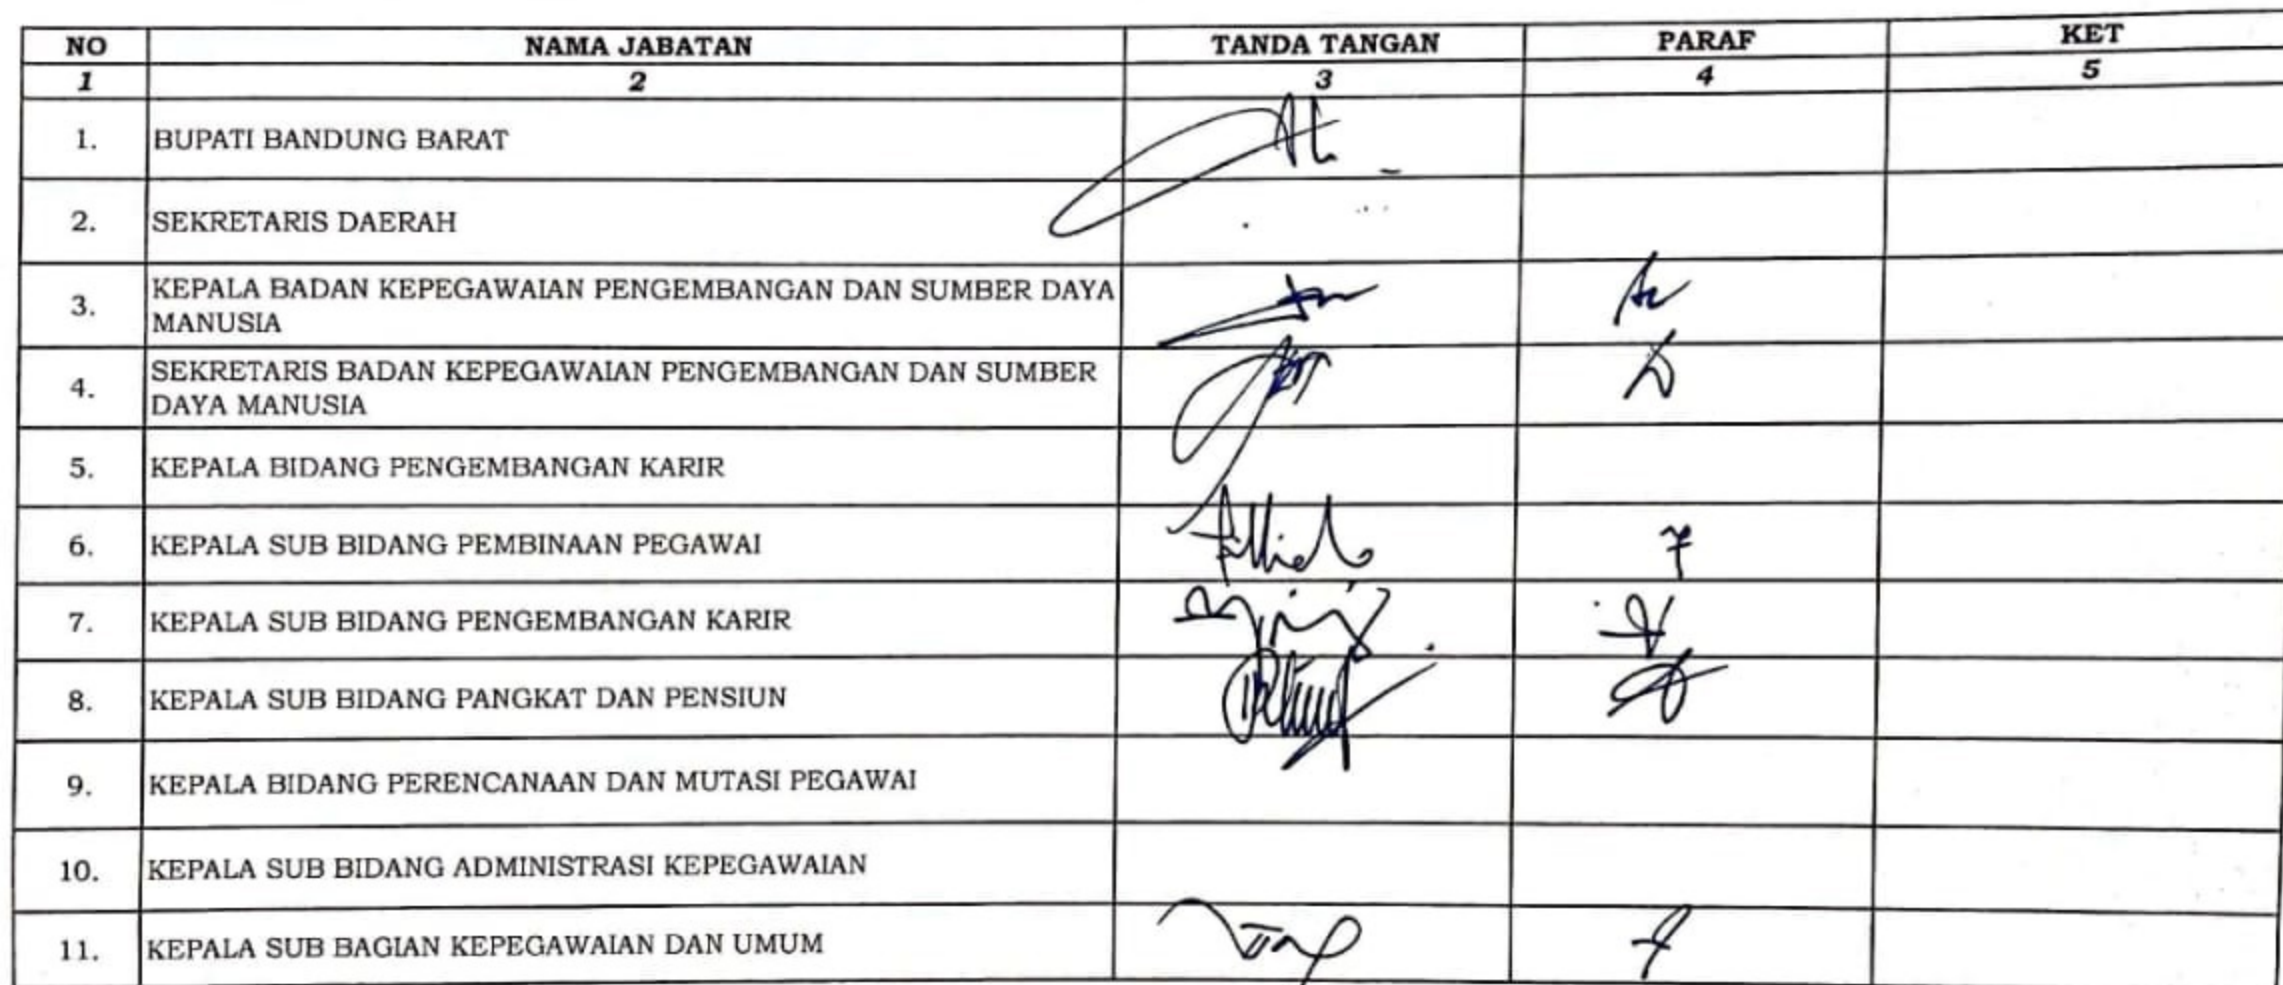 NO NAMA JABATAN TANDA TANGAN PARAF KET
1 2 3 4 5
1. BUPATI BANDUNG BARAT
2. SEKRETARIS DAERAH
3. KEPALA BADAN KEPEGAWAIAN PENGEMBANGAN DAN SUMBER DAYA
MANUSIA
4. SEKRETARIS BADAN KEPEGAWAIAN PENGEMBANGAN DAN SUMBER
DAYA MANUSIA
5. KEPALA BIDANG PENGEMBANGAN KARIR
6. KEPALA SUB BIDANG PEMBINAAN PEGAWAI
7. KEPALA SUB BIDANG PENGEMBANGAN KARIR
8. KEPALA SUB BIDANG PANGKAT DAN PENSIUN
9. KEPALA BIDANG PERENCANAAN DAN MUTASI PEGAWAI
10. KEPALA SUB BIDANG ADMINISTRASI KEPEGAWAIAN
11. KEPALA SUB BAGIAN KEPEGAWAIAN DAN UMUM